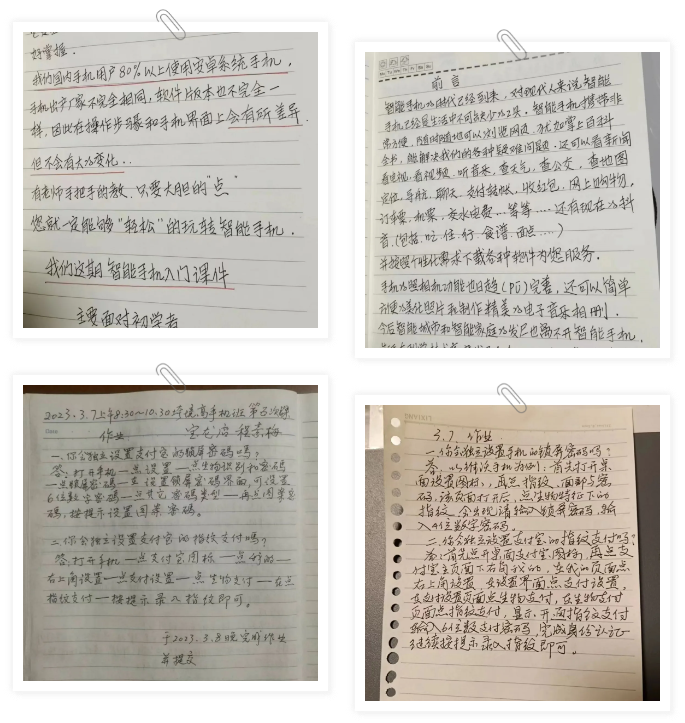 好掌握.
我们国内手机用户80%以上使用安卓系统手机,
手机出产厂家不完全相同,软件版本也不完全一
样,因此在操作步骤和手机界面上会有所差异.
但不会有太大变化..
有老师手把手的教,只要大胆的"点"
您就一定能够"轻松"的玩转智能手机.
我们这期智能手机入门课件
主要面对初学者
前言
智能手机的时代已经到来,对现代人来说智能
手机已经是生活中不可缺少的工具。智能手机携带非
常方便,随时随地可以浏览网页,犹如掌上百科
全书,能解决我们的各种疑难问题。还可以看新闻
看电视,看视频,听音乐,查天气,查公交,查地图
定位,导航,聊天,支付转帐,收红包,网上购物,
订车票,机票,交水电费...等等......还有现在的抖
音,(包括,吃,住,行,食谱,面点......)
并按照个性化需求下载各种软件为您服务。
手机的照相机功能也日趋(PG)完善,还可以简单
方便的美化照片和制作精美的电子音乐相册.
今后智能城市和智能家庭的发展也离不开智能手机.
2023.3.7上午8:30~10:30 手机班 第3次课
作业
一.你会独立设置支付宝的锁屏密码吗?
答:打开手机—点设置—点生物识别和密码
—点锁屏密码—在设置锁屏密码界面,可设置
6位数字密码—点其它密码类型—再点图案密
码,按提示设置图案密码。
二.你会独立设置支付宝的指纹支付吗?
答:打开手机—点支付宝图标—点我的—
右上角设置—点支付设置—点生物支付—在点
指纹支付—按提示录入指纹即可。
于2023.3.8晚完成作业
并提交
3.7.作业
一.你会独立设置手机的锁屏密码吗?
答:以我的手机为例:首先打开桌
面设置图标,再点指纹、面部与密
码,该页面打开后,点生物特征下的
指纹,会出现请输入锁屏密码,输
入4位数字密码。
二.你会独立设置支付宝的指纹支付吗?
答:首先点开桌面支付宝图标,再点支
付宝主页面下右角我的,在我的页面点
右上角设置,在设置界面点支付设置,
在支付设置页面点生物支付,在生物支付
页面点指纹支付,显示开通指纹支付
输入6位数支付密码,完成身份认证
继续按提示录入指纹即可。